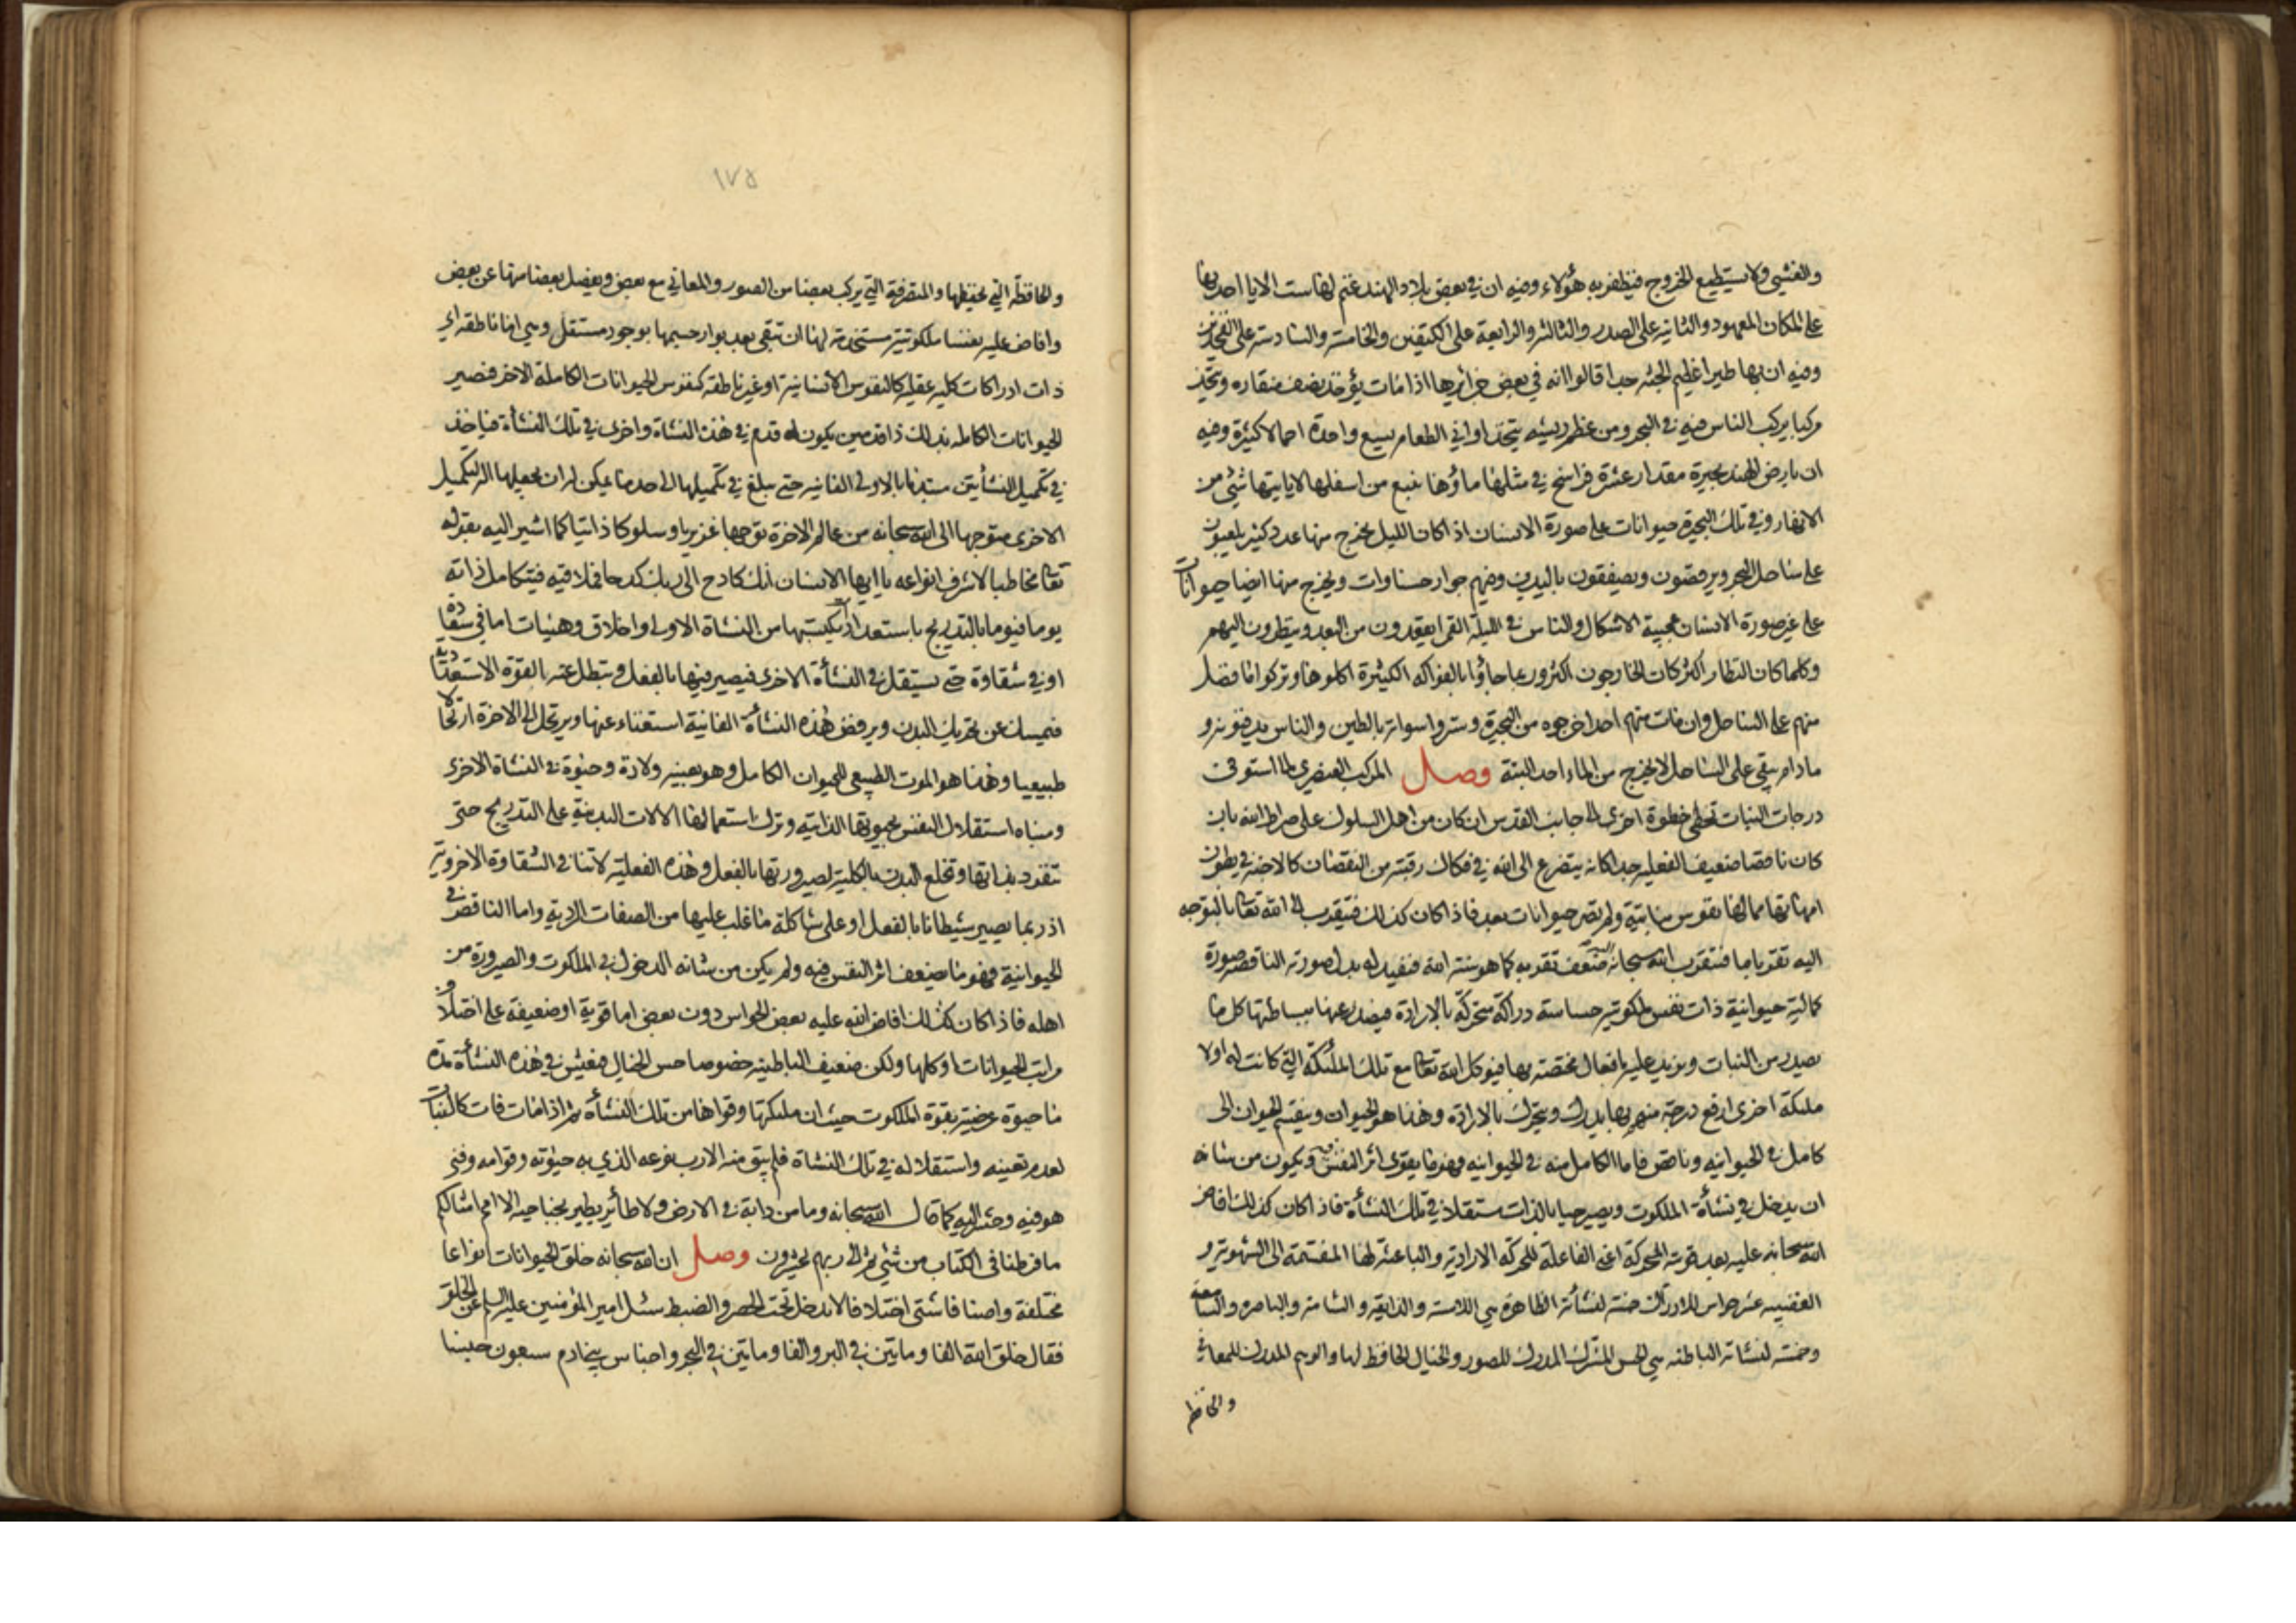 والغشي ولا يستطيع الخروج فيظفر به هؤلاء وفيه ان في بعض بلاد الهند غنم لها ست الايا احديها
على المكان المعهود والثانية على الصدر والثالثة والرابعة على الكتفين والخامسة والسادسة على الفخذين
وفيه ان بها طيرا عظيم الجثه جدا قالوا انه في بعض جزائرها اذا مات يؤخذ نصف منقاره ويتخذ
مركبا يركب الناس فيه في البحر ومن عظم ريشه يتخذ اواني الطعام يسع واحدة احمالا كثيرة وفيه
ان بارض الهند بحيرة مقدار عشرة فراسخ في مثلها ماؤها ينبع من اسفلها لا ياتيها شئ من
الانهار وفي تلك البحيرة حيوانات على صورة الانسان اذا كان الليل يخرج منها عدد كثير يلعبون
على ساحل البحر ويرقصون ويصفقون باليدين وفيهم جوار حسناوات ويخرج منها ايضا حيوانات
على غير صورة الانسان عجيبة الاشكال والناس في الليلة القمرا يقعدون من البعد وينظرون اليهم
وكلما كان النظار اكثر كان الخارجون اكثر وربما جاؤا بالفواكه الكثيرة اكلوها وتركوا ما فضل
منهم على الساحل وان مات منهم احد اخرجوه من البحيرة وستروا سواته بالطين والناس يدفنونه و
ما دام يبقى على الساحل لا يخرج من الماء احد البتة وصل المركب العنصري لما استوفى
درجات النبات تخطى خطوة اخرى الى جانب القدس ان كان من اهل السلوك على صراط الله بان
كان ناقصا ضعيف الفعلية جدا كانه يتضرع الى الله في فكاك رقبته من النقصان كالاجنه في بطون
امهاتها مما لها نفوس نباتية ولم تصر حيوانات بعد فاذا كان كذلك فيتقرب الى الله تعالى بالتوجه
اليه تقربا ما فتقرب الله سبحانه اليه ضعف تقربه كما هو سنة الله فيفيد له بدل صورته الناقصه صورة
كمالية حيوانية ذات نفس ملكوتية حساسة دراكة متحركة بالارادة فيصدر عنها ببساطتها كل ما
يصدر من النبات ويزيد عليه بافعال مختصة بها فيوكل الله تعالى مع تلك الملئكة التي كانت له اولا
ملئكة اخرى ارفع درجة منهم بها يدرك ويتحرك بالارادة وهذا هو الحيوان وينقسم الحيوان الى
كامل في الحيوانيه وناقص فاما الكامل منه في الحيوانيه فهو ما يقوى اثر النفس فيه ويكون من شانه
ان يدخل في نشأة الملكوت ويصير حيا بالذات مستقلا في تلك النشأة فاذا كان كذلك افاض
الله سبحانه عليه بعد قوته المحركة اعني الفاعلة للحركة الارادية والباعثة لها المنقسمة الى الشهوية و
الغضبيه عشر حواس للادراك خمسة لنشأته الظاهرة هي اللامسة والذايقة والشامة والباصرة والسامعة
وخمسة لنشاته الباطنه هي الحس المشترك المدرك للصور والخيال الحافظ لها والوهم المدرك للمعاني
والحافظة
١٧٥
والحافظة التي تحفظها والمتصرفة التي يركب بعضا من الصور والمعاني مع بعض ويفصل بعضا منها عن بعض
وافاض عليه نفسا ملكوتية مستخدمة لها ان تبقى بعد بوار جسمها بوجود مستقل وهي اما ناطقه اي
ذات ادراكات كليه عقليه كالنفوس الانسانية او غير ناطقه كنفوس الحيوانات الكاملة الاخر فتصير
الحيوانات الكاملة بذلك ذا قدمين يكون له قدم في هذه النشاة واخرى في تلك النشأة فياخذ
في تكميل النشأتين مبتديا بالاولى الفانيه حتى يبلغ في تكميلها الى حد ما يمكن له ان يجعلها الة لتكميل
الاخرى متوجها الى الله سبحانه من عالم الاخرة توجها غريزيا وسلوكا ذاتيا كما اشير اليه بقوله
تعالى مخاطبا لاشرف انواعه يا ايها الانسان انك كادح الى ربك كدحا فملاقيه فيتكامل ذاته
يوما فيوما بالتدريج باستعدادات يكتسبها من النشاة الاولى واخلاق وهيئات اما في سعادة
او في شقاوة حتى يستقل في النشأة الاخرى فيصير فيها بالفعل ويبطل عنه القوة الاستعدادية
فيمسك عن تحريك البدن ويرفض هذه النشأة الفانية استغناء عنها ويرتحل الى الاخرة ارتحالا
طبيعيا وهذا هو الموت الطبيعي للحيوان الكامل وهو بعينه ولادة وحيوة في النشاة الاخرى
ومبناه استقلال النفس بحيوتها الذاتية وترك استعمالها الالات البدنية على التدريج حتى
تنفرد بذاتها وتخلع البدن بالكلية لصيرورتها بالفعل وهذه الفعلية لا تنافي الشقاوة الاخروية
اذ ربما يصير شيطانا بالفعل او على شاكلة ما غلب عليها من الصفات الردية واما الناقص في
الحيوانية فهو ما ضعف اثر النفس فيه ولم يكن من شانه الدخول في الملكوت والصيرورة من
اهله فاذا كان كذلك افاض الله عليه بعض الحواس دون بعض اما قوية او ضعيفة على اختلاف
مراتب الحيوانات او كلها ولكن ضعيف الباطنية خصوصا حس الخيال فيعيش في هذه النشأة مدة
ما حيوة عرضية بقوة الملكوت حيث ان ملئكتها وقواها من تلك النشأة ثم اذا مات فات كالنبات
لعدم تعينه واستقلاله في تلك النشاة فلم يبق منه الا رب نوعه الذي به حيوته وقوامه وفني
هو فيه وحشر اليه كما قال الله سبحانه وما من دابة في الارض ولا طائر يطير بجناحيه الا امم امثالكم
ما فرطنا في الكتاب من شئ ثم الى ربهم يحشرون وصل ان الله سبحانه خلق الحيوانات انواعا
مختلفة واصنافا شتى اختلافا لا يدخل تحت الحصر والضبط سئل امير المؤمنين عليه السلام عن الخلق
فقال خلق الله الفا ومأتين في البر والفا ومأتين في البحر واجناس بني ادم سبعون جنسا